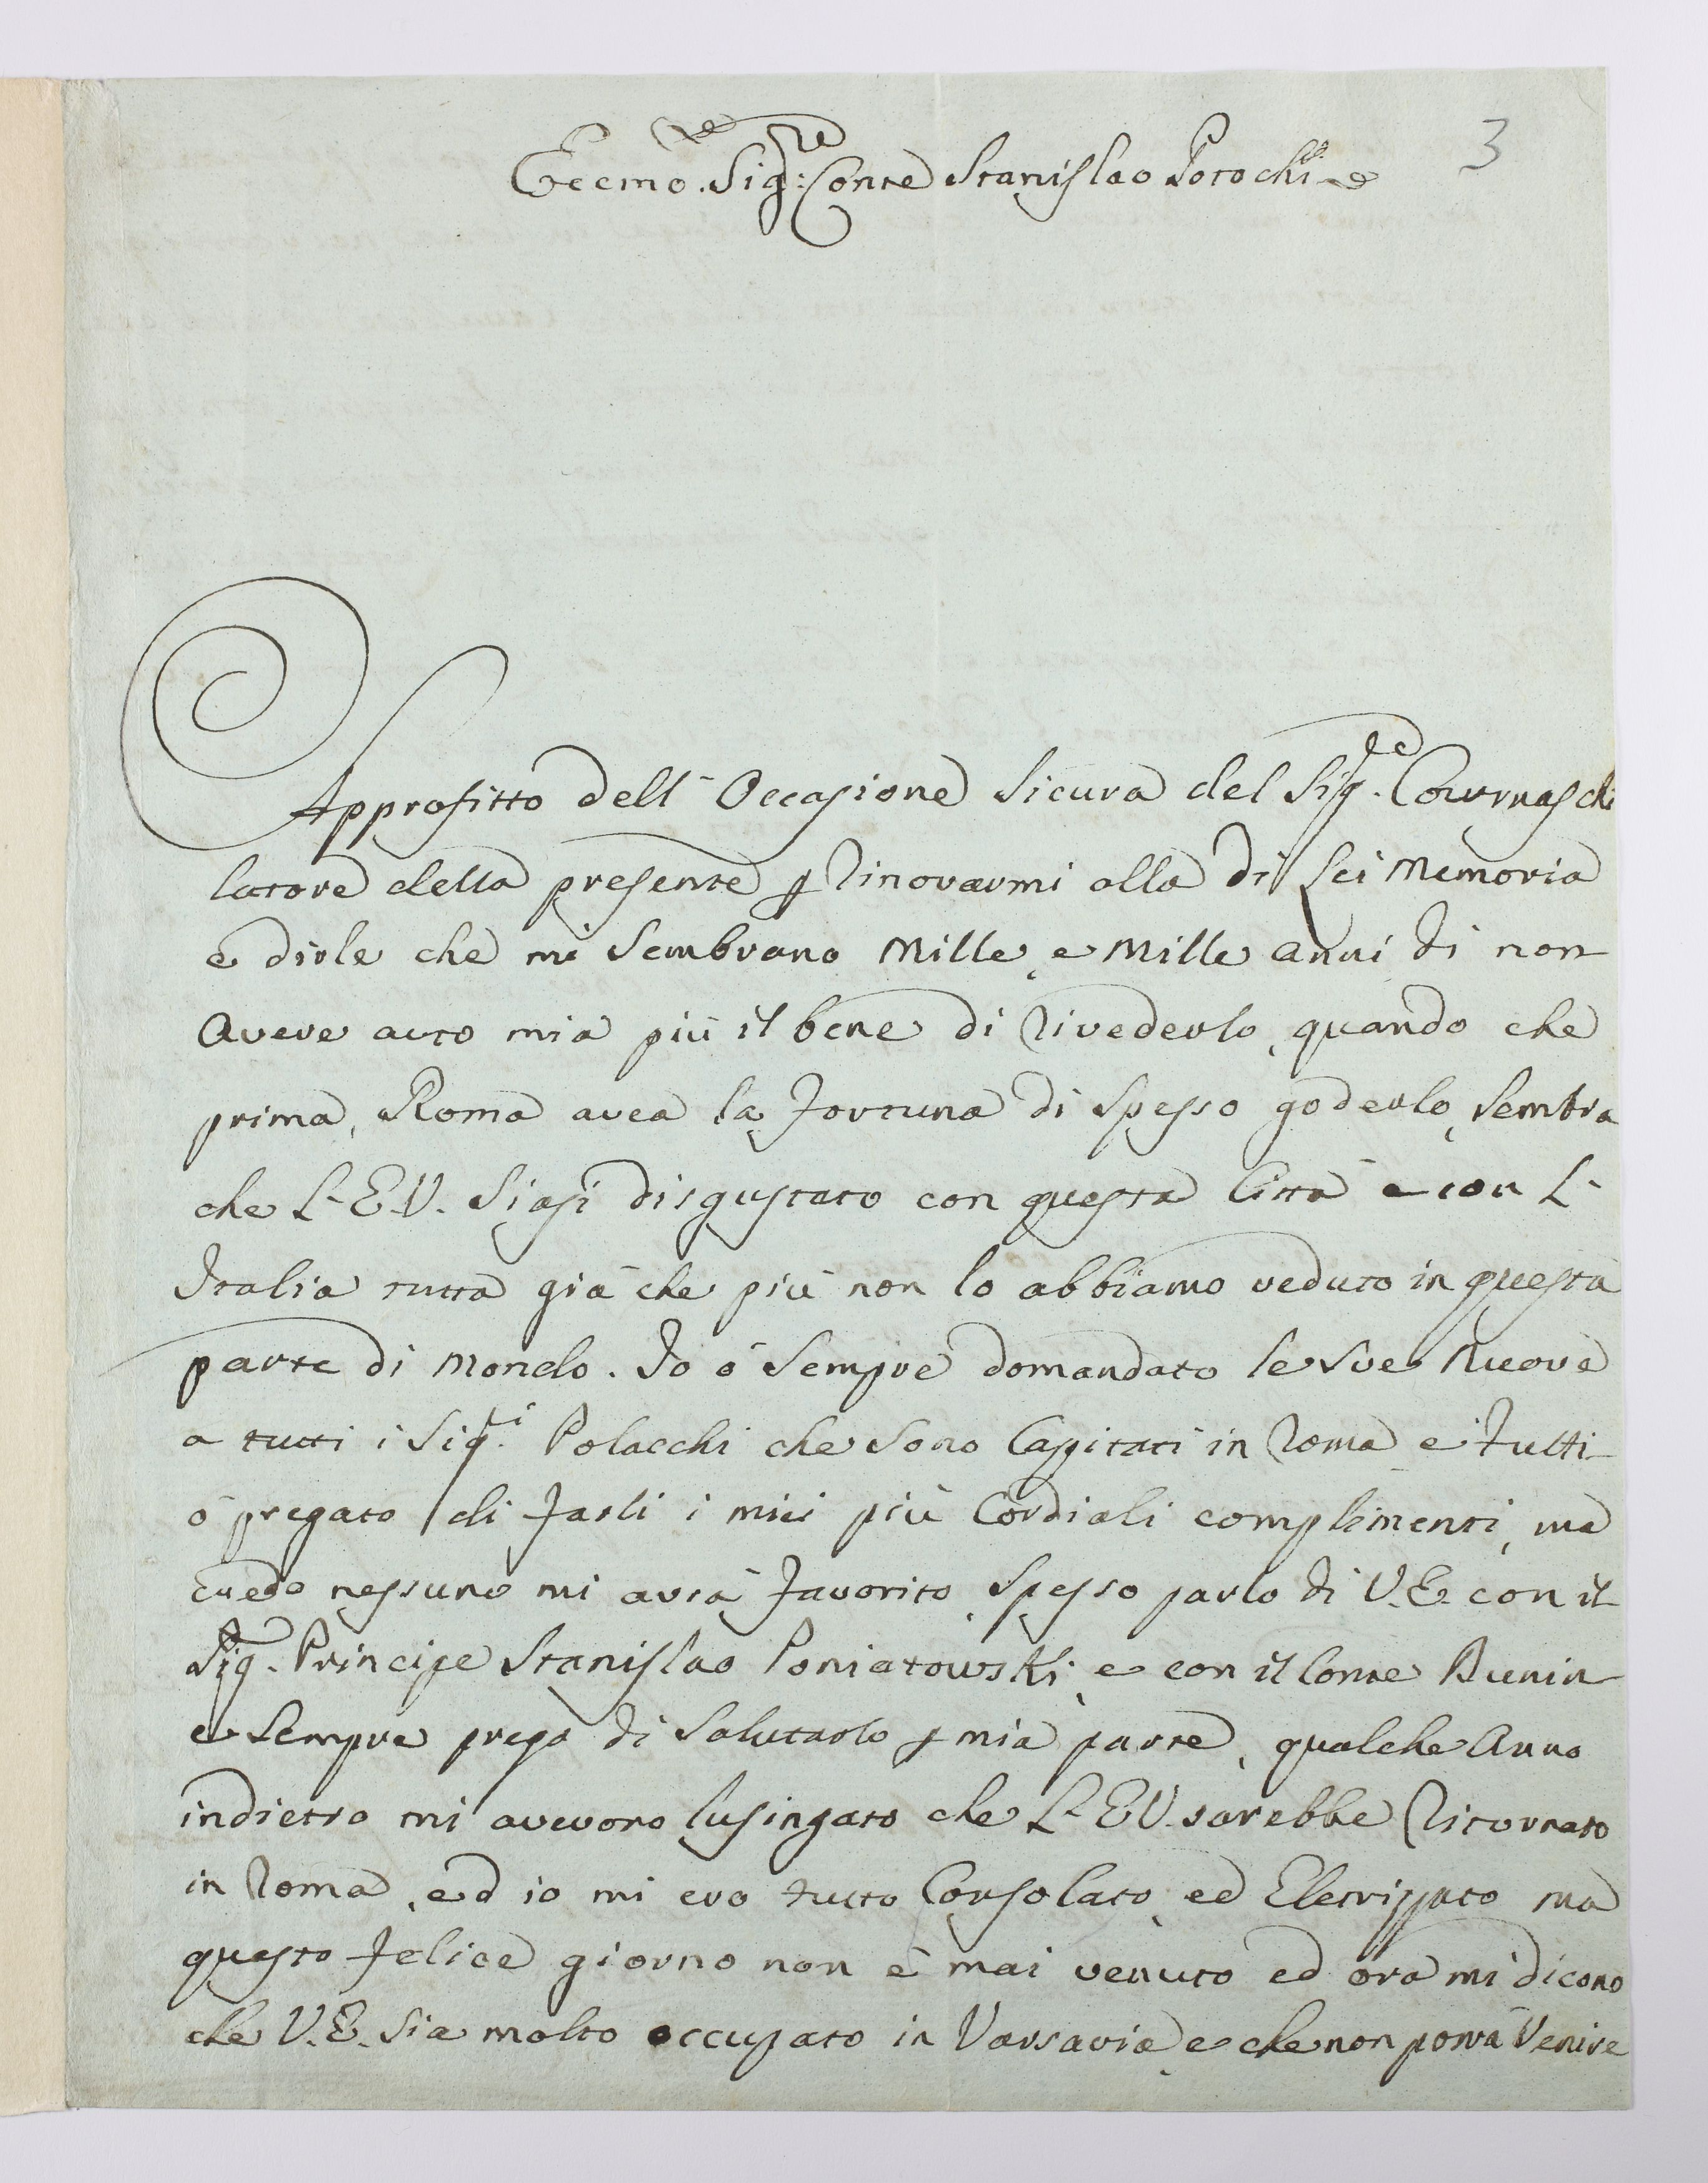 3
Eccmo. Sig:re Conte Stanislao Potochi
Approfitto dell' Occasione Sicura del Sig.re
latore della presente p Rinovarmi alla di Lei Memoria
e dirle che mi Sembrano Mille, e Mille anni di non
Avere auto mia più il bene di Rivederlo, quando che
prima, Roma avea la Fortuna di Spesso goderlo, Sembra
che L'E.V. Siasi disgustato con questa Città e con L'
Italia tutta già che più non lo abbiamo veduto in questa
parte di Mondo. Io ó Sempre domandato le Sue Nuove
a tutti i Sig.ri Polacchi che Sono Capitati in Roma e Tutti
ó pregato di Farli i miei più Cordiali complimenti, ma
Credo nessuno mi avrà Favorito, Spesso parlo di V.E. con il
Sig.re Principe Stanislao Poniatowski, e con il Conte Bunin
e Sempre prego di Salutarlo p mia parte, qualche Anno
indietro mi avevono lusingato che L'E.V. sarebbe Ritornato
in Roma, ed io mi ero tutto Consolato, ed Eletrizzato ma
questo Felice giorno non è mai venuto ed ora mi dicono
che V.E. Sia molto occupato in Varsavia, e che non potrà Venire